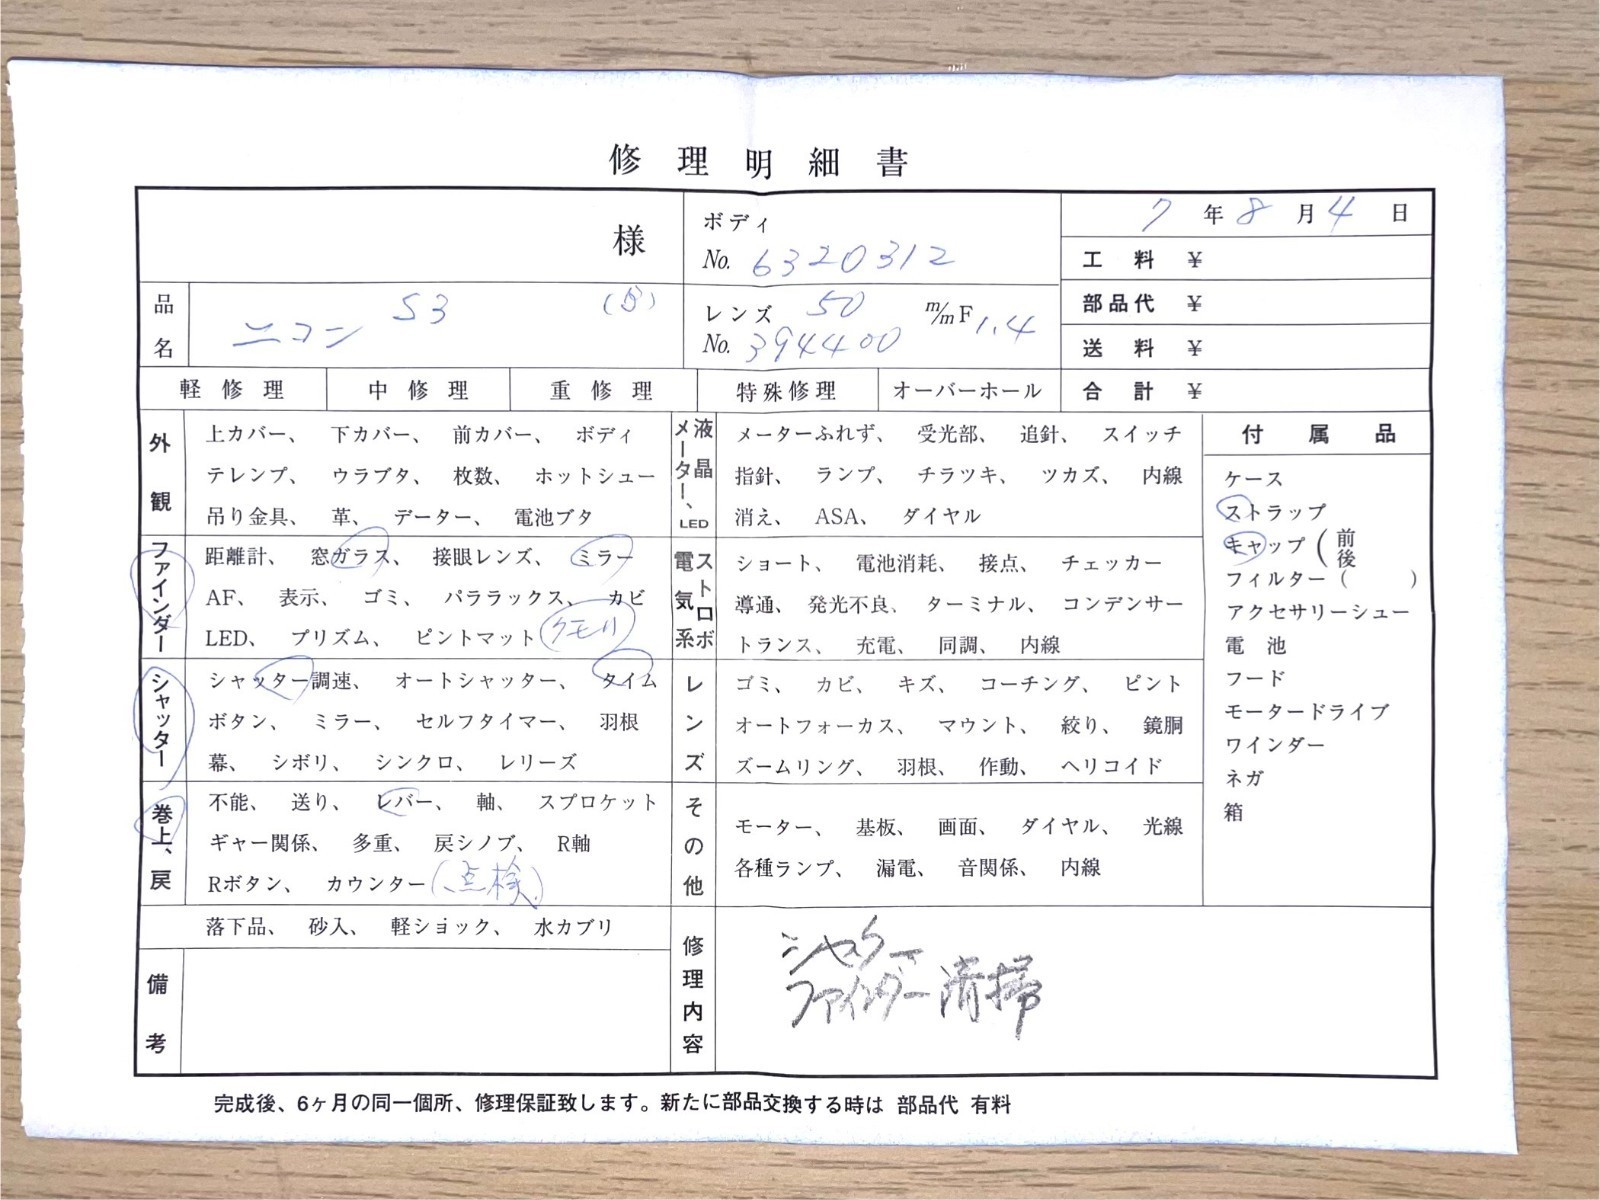 修理明細書
様
ボディ
No. 6320312
7 年 8 月 4 日
工料 ¥
部品代 ¥
送料 ¥
合計 ¥
品名
ニコン S3
レンズ 50 m/m F 1.4
No. 394400
軽修理 中修理 重修理 特殊修理 オーバーホール
外観
上カバー、 下カバー、 前カバー、 ボディ
テレンプ、 ウラブタ、 枚数、 ホットシュー
吊り金具、 革、 データー、 電池ブタ
ファインダー
距離計、 窓ガラス、 接眼レンズ、 ミラー
AF、 表示、 ゴミ、 パララックス、 カビ
LED、 プリズム、 ピントマット クモリ
シャッター
シャッター調速、 オートシャッター、 タイム
ボタン、 ミラー、 セルフタイマー、 羽根
幕、 シボリ、 シンクロ、 レリーズ
巻上、戻
不能、 送り、 レバー、 軸、 スプロケット
ギャー関係、 多重、 戻シノブ、 R軸
Rボタン、 カウンター (点検)
落下品、 砂入、 軽ショック、 水カブリ
備考
メーター、液晶 LED
メーターふれず、 受光部、 追針、 スイッチ
指針、 ランプ、 チラツキ、 ツカズ、 内線
消え、 ASA、 ダイヤル
電気系 ストロボ
ショート、 電池消耗、 接点、 チェッカー
導通、 発光不良、 ターミナル、 コンデンサー
トランス、 充電、 同調、 内線
レンズ
ゴミ、 カビ、 キズ、 コーチング、 ピント
オートフォーカス、 マウント、 絞り、 鏡胴
ズームリング、 羽根、 作動、 ヘリコイド
その他
モーター、 基板、 画面、 ダイヤル、 光線
各種ランプ、 漏電、 音関係、 内線
修理内容
シャッター
ファインダー清掃
付属品
ケース
ストラップ
キャップ(前後
フィルター( )
アクセサリーシュー
電池
フード
モータードライブ
ワインダー
ネガ
箱
完成後、6ヶ月の同一個所、修理保証致します。新たに部品交換する時は 部品代 有料